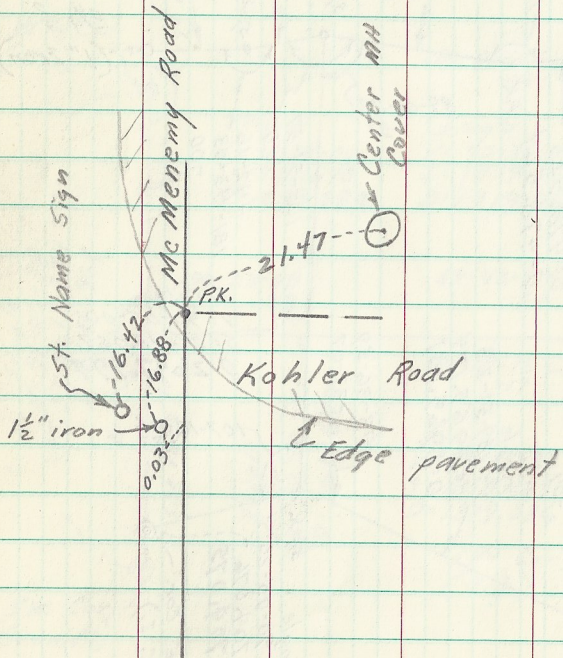 Mc Menemy Road
Center MH
Cover
St. Name Sign
21.47
P.K.
16.42
16.88
Kohler Road
1½" iron
0.03
Edge pavement